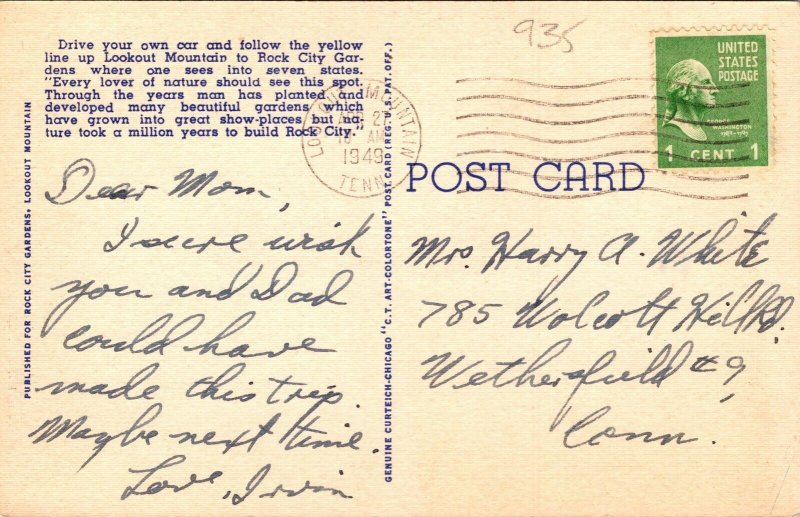 935
Drive your own car and follow the yellow
line up Lookout Mountain to Rock City Gar-
dens where one sees into seven states.
"Every lover of nature should see this spot.
Through the years man has planted and
developed many beautiful gardens which
have grown into great show-places but na-
ture took a million years to build Rock City."
PUBLISHED FOR ROCK CITY GARDENS, LOOKOUT MOUNTAIN
GENUINE CURTEICH-CHICAGO "C.T. ART-COLORTONE" POST CARD (REG. U.S. PAT. OFF.)
LOOKOUT MOUNTAIN
27
AM
1949
TENN
UNITED
STATES
POSTAGE
GEORGE
WASHINGTON
1789-1797
1 CENT 1
POST CARD
Dear Mom,
I sure wish
you and Dad
could have
made this trip.
Maybe next time.
Love, Irwin
Mrs. Harry A. White
785 Wolcott Hill Rd.
Wethersfield #9,
Conn.